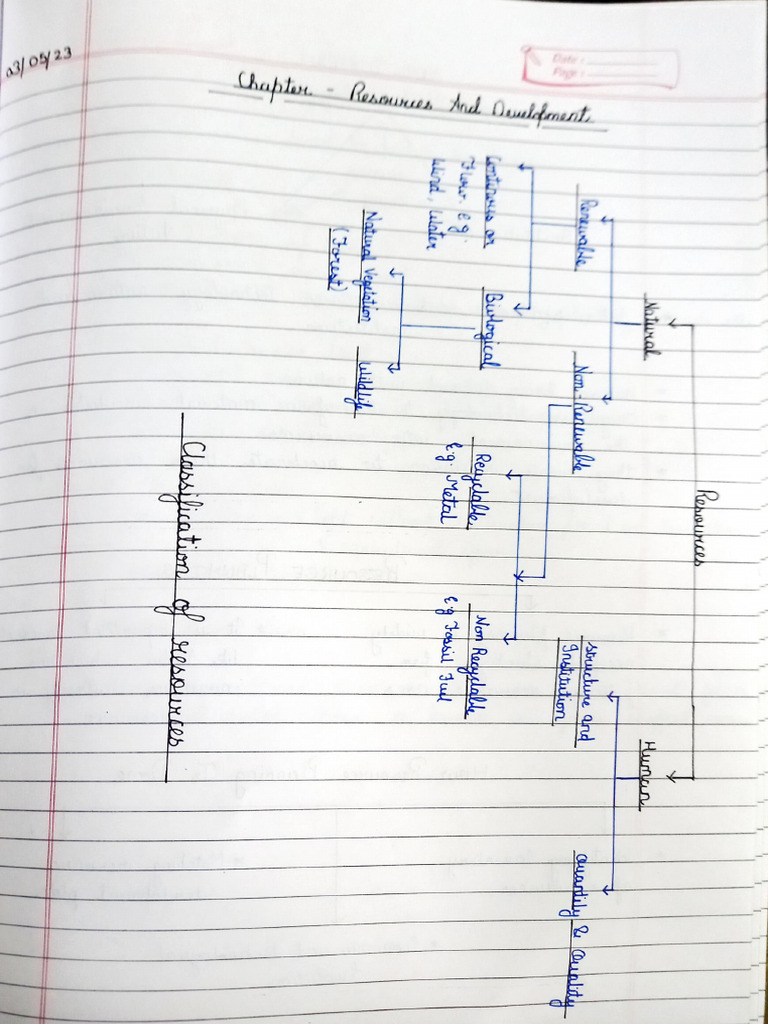 03/05/23
Date :
Page :
Chapter - Resources And Development
Resources
Natural
Human
Renewable
Non-Renewable
structure and
Institution
Quantity & Quality
Continuous or
Flow. e.g.
Wind, Water
Biological
Recyclable
e.g. Metal
Non Recyclable
e.g Fossil Fuel
Natural Vegetation
(Forest)
Wildlife
Classification of resources